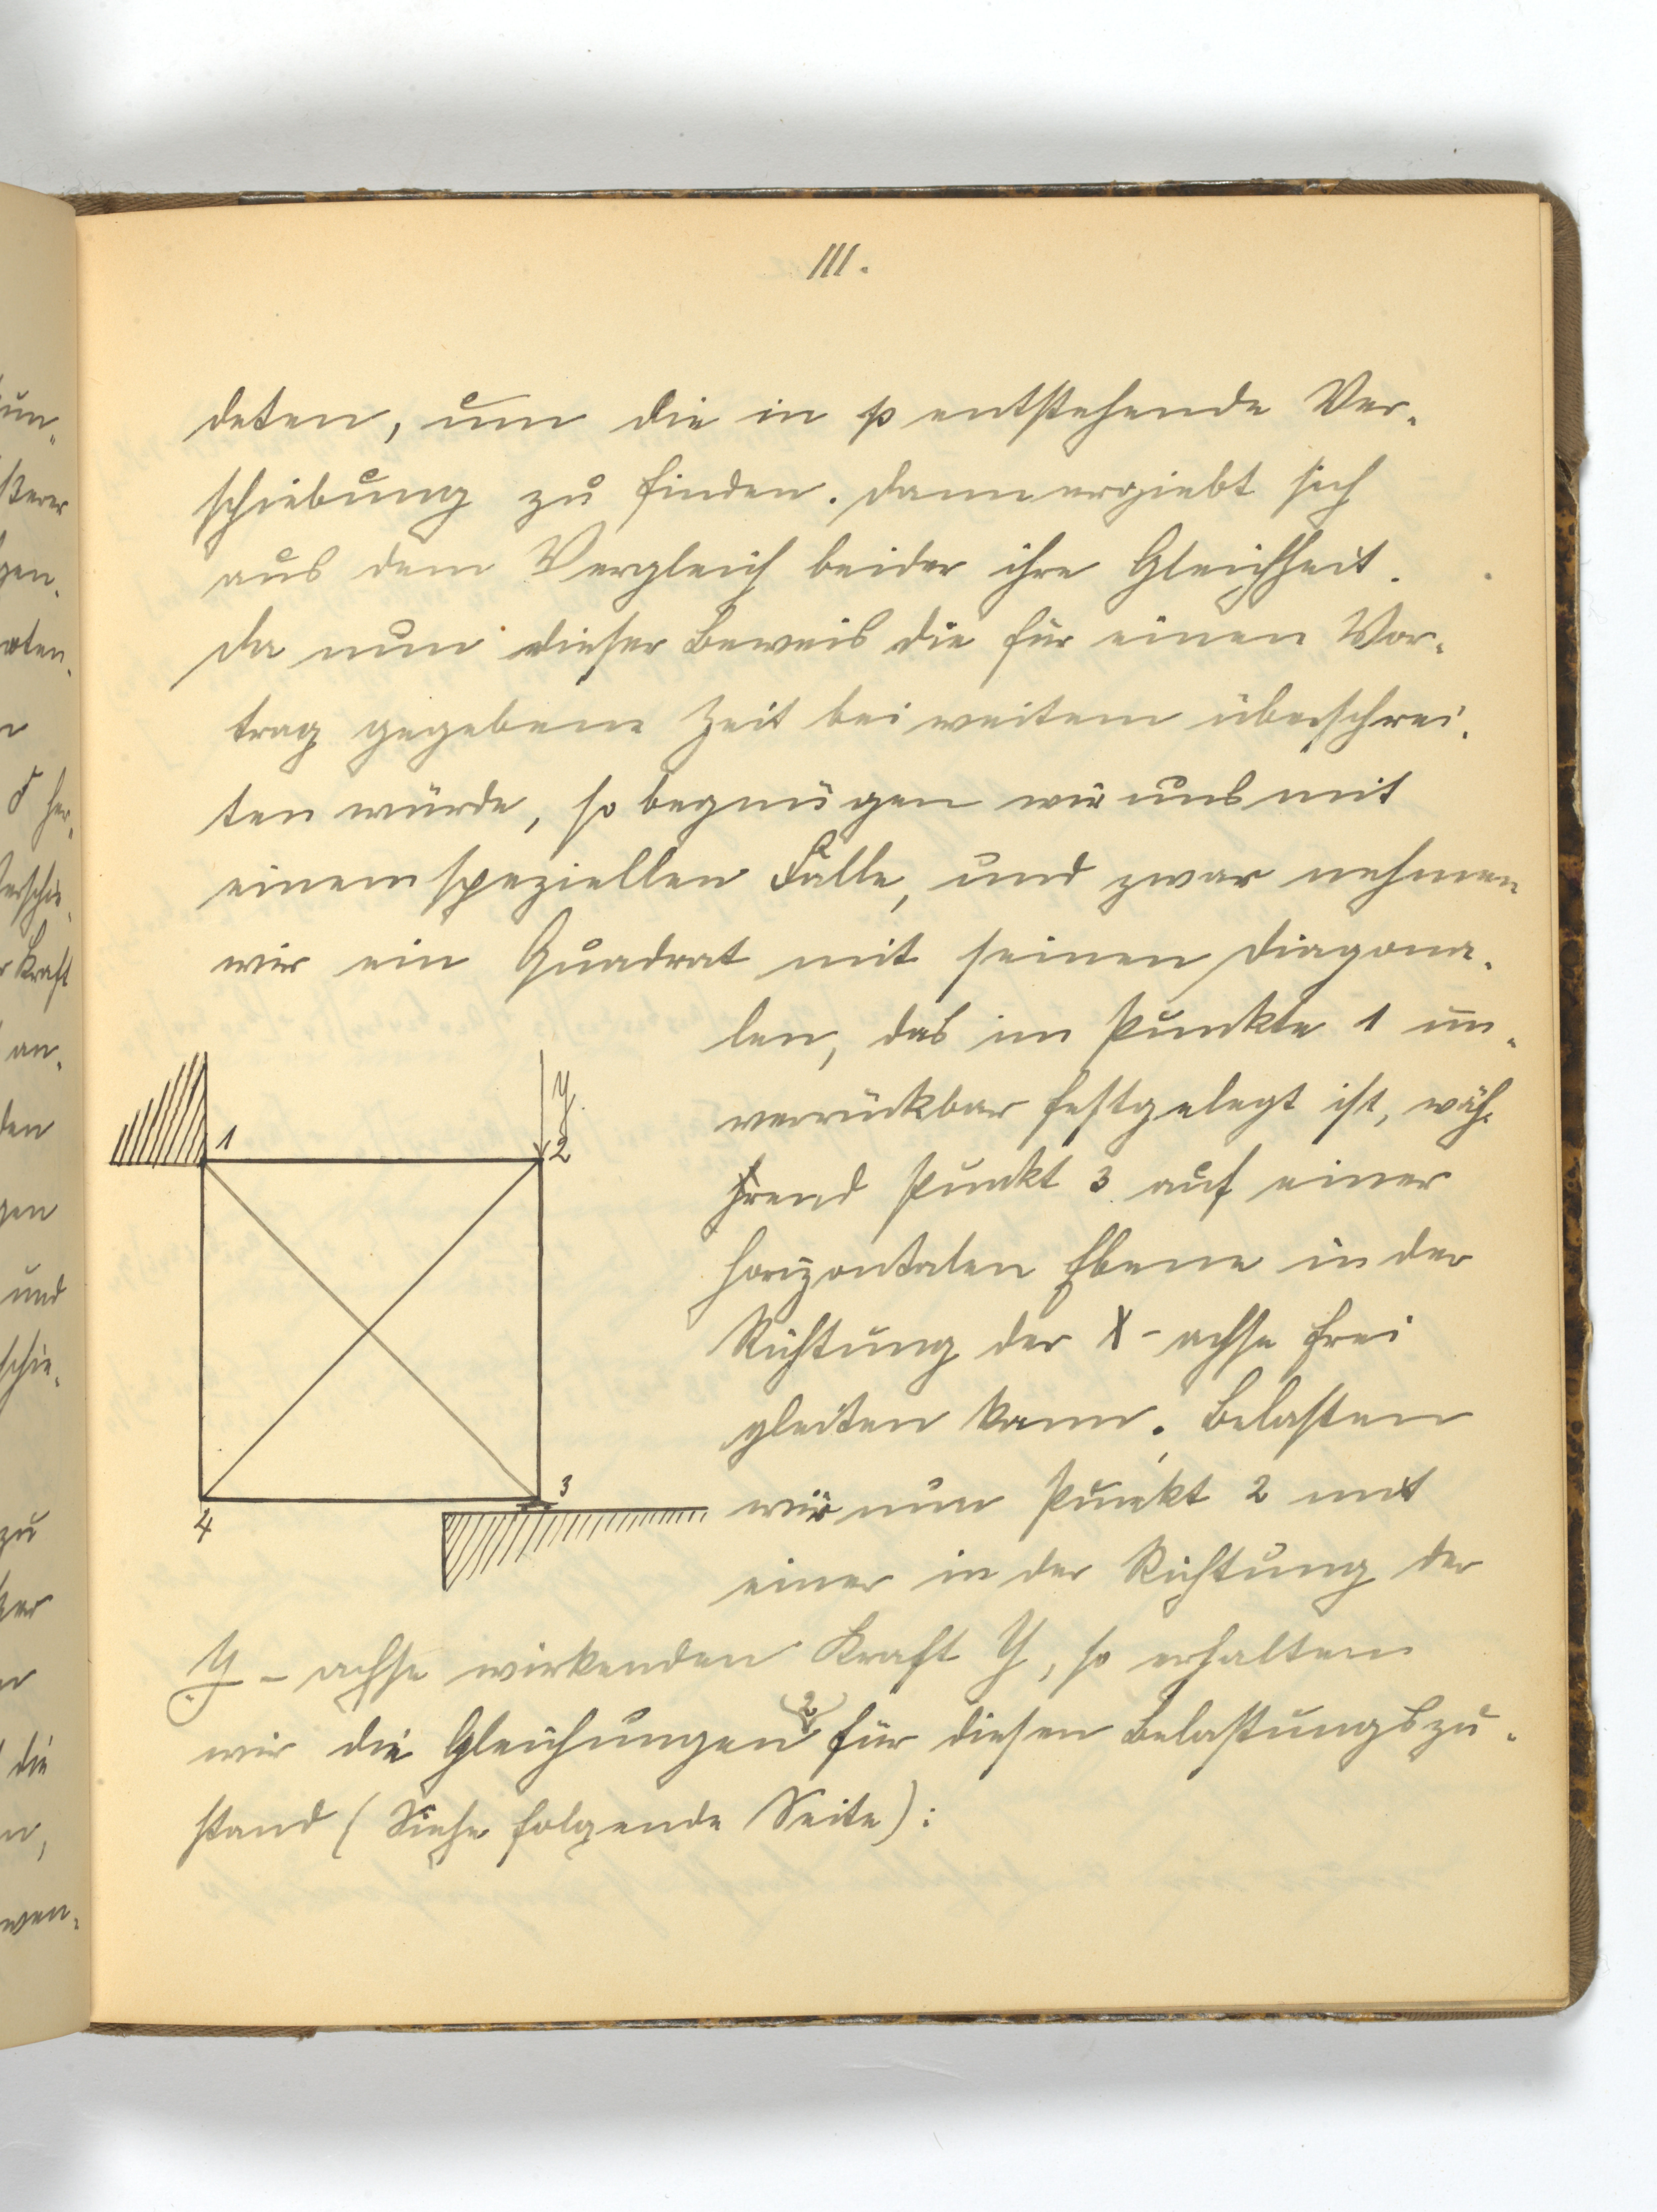 III.
deten, um die in p entstehende Ver-
schiebung zu finden. Dann ergiebt sich
aus dem Vergleich beider ihre Gleichheit.
Da nun dieser Beweis die für einen Vor-
trag gegebene Zeit bei weitem überschrei-
ten würde, so begnügen wir uns mit
einem speziellen Falle, und zwar nehmen
wir ein Quadrat mit seinen Diagona-
len, das im Punkte 1 un-
verrückbar festgelegt ist, wäh-
rend Punkt 3 auf einer
horizontalen Ebene in der
Richtung der X-achse frei
gleiten kann. Belasten
wir nun Punkt 2 mit
einer in der Richtung der
Y-achse wirkenden Kraft Y, so erhalten
wir die Gleichungen 2 für diesen Belastungszu-
stand (Siehe folgende Seite):
1
Y.
2
3
4
un-
ßerer
gen-
ten-
her-
Kraft
an-
den
gen
und
schie-
zu
die
n,
wen-